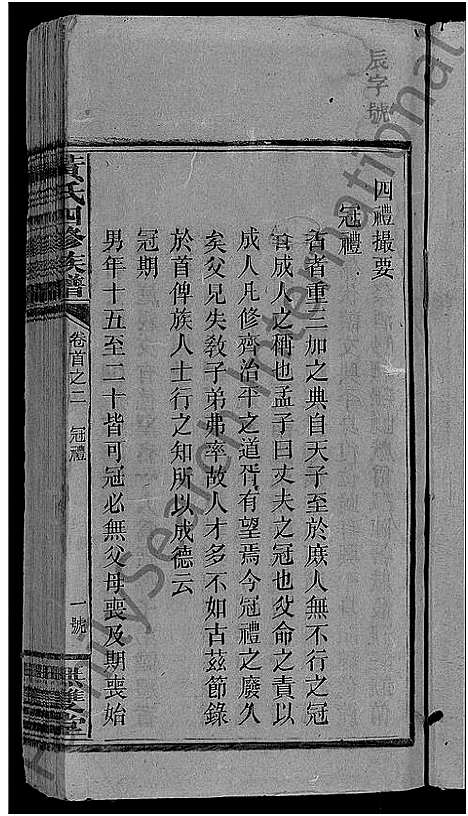 辰字號
四禮撮要
冠禮
古者重三加之典自天子至於庶人無不行之冠
者成人之稱也孟子曰丈夫之冠也父命之責以
成人凡修齊治平之道胥有望焉今冠禮之廢久
矣父兄失教子弟弗率故人才多不如古茲節錄
於首俾族人士行之知所以成德云
冠期
男年十五至二十皆可冠必無父母喪及期喪始
黃氏四修族譜
卷首之二 冠禮
一號
雙堂